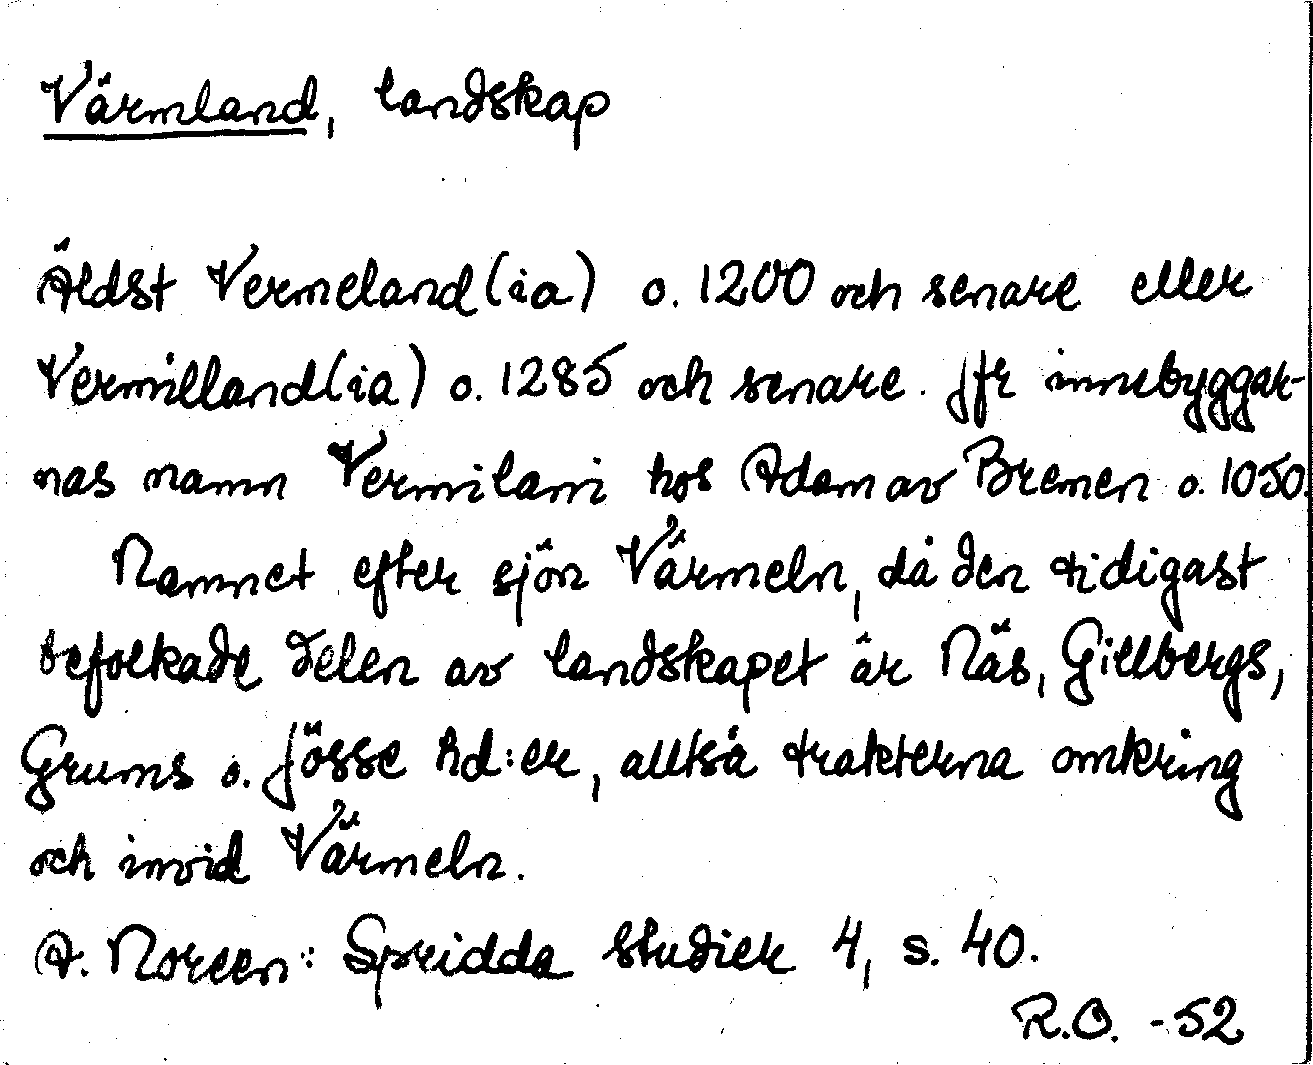 Värmland, landskap
Äldst Vermeland(ia) o. 1200 och senare eller
Vermilland(ia) o. 1285 och senare. Jfr innebyggar-
nas namn Vermilani hos Adam av Bremen o. 1050.
Namnet efter sjön Värmeln, då den tidigast
befolkade delen av landskapet är Näs, Gillbergs,
Grums o. Jösse hd:er, alltså trakterna omkring
och invid Värmeln.
A. Noreen: Spridda studier 4, s. 40.
R.O. -52